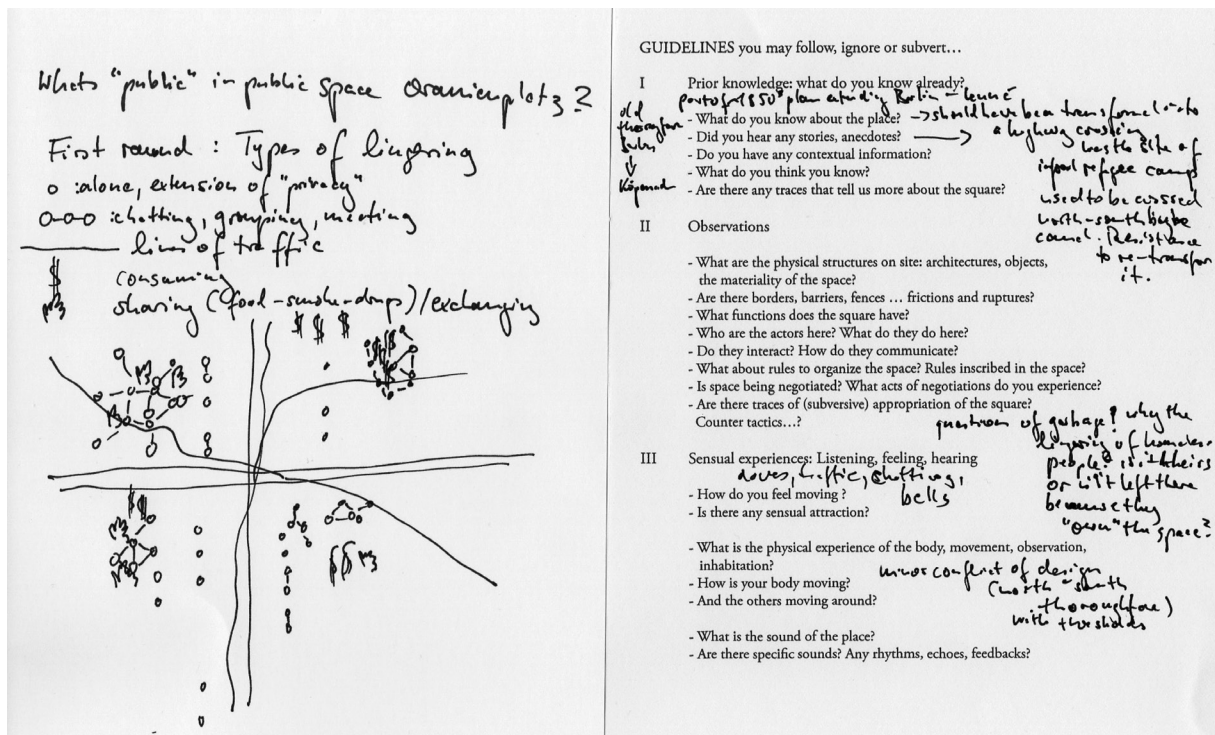 Whats "public" in public space Oranienplatz?
First round: Types of lingering
o :alone, extension of "privacy"
o-o-o :chatting, grouping, meeting
lines of traffic
$ consuming
sharing (food-smoke-drugs)/exchanging
$ $ $
GUIDELINES you may follow, ignore or subvert…
I Prior knowledge: what do you know already?
part of 1850s plan extending Berlin – Lenné
- What do you know about the place? → should have been transformed into
a highway crossing
- Did you hear any stories, anecdotes? →
was the site of
- Do you have any contextual information?
refugee camp
- What do you think you know?
- Are there any traces that tell us more about the square?
old
thoroughfare
↓
used to be crossed
north-south by
canal. Resistance
to re-transform
it.
II Observations
- What are the physical structures on site: architectures, objects,
the materiality of the space?
- Are there borders, barriers, fences … frictions and ruptures?
- What functions does the square have?
- Who are the actors here? What do they do here?
- Do they interact? How do they communicate?
- What about rules to organize the space? Rules inscribed in the space?
- Is space being negotiated? What acts of negotiations do you experience?
- Are there traces of (subversive) appropriation of the square?
Counter tactics…?
questions of garbage? why the
lingering of homeless
people? is it theirs
or is it left there
because they
"own" the space?
III Sensual experiences: Listening, feeling, hearing
doves, traffic, chatting,
bells
- How do you feel moving ?
- Is there any sensual attraction?
- What is the physical experience of the body, movement, observation,
inhabitation?
minor conflict of design
(north-south
thoroughfare)
with thresholds
- How is your body moving?
- And the others moving around?
- What is the sound of the place?
- Are there specific sounds? Any rhythms, echoes, feedbacks?